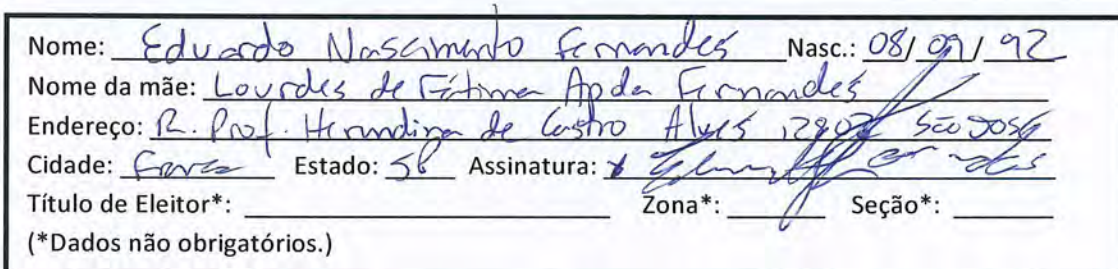 Nome: Eduardo Nascimento Fernandes Nasc.: 08/09/92
Nome da mãe: Lourdes de Fátima Apda Fernandes
Endereço: R. Prof. Herundina de Castro Alves, São José
Cidade: Franca Estado: SP Assinatura: x
Título de Eleitor*: Zona*: Seção*:
(*Dados não obrigatórios.)